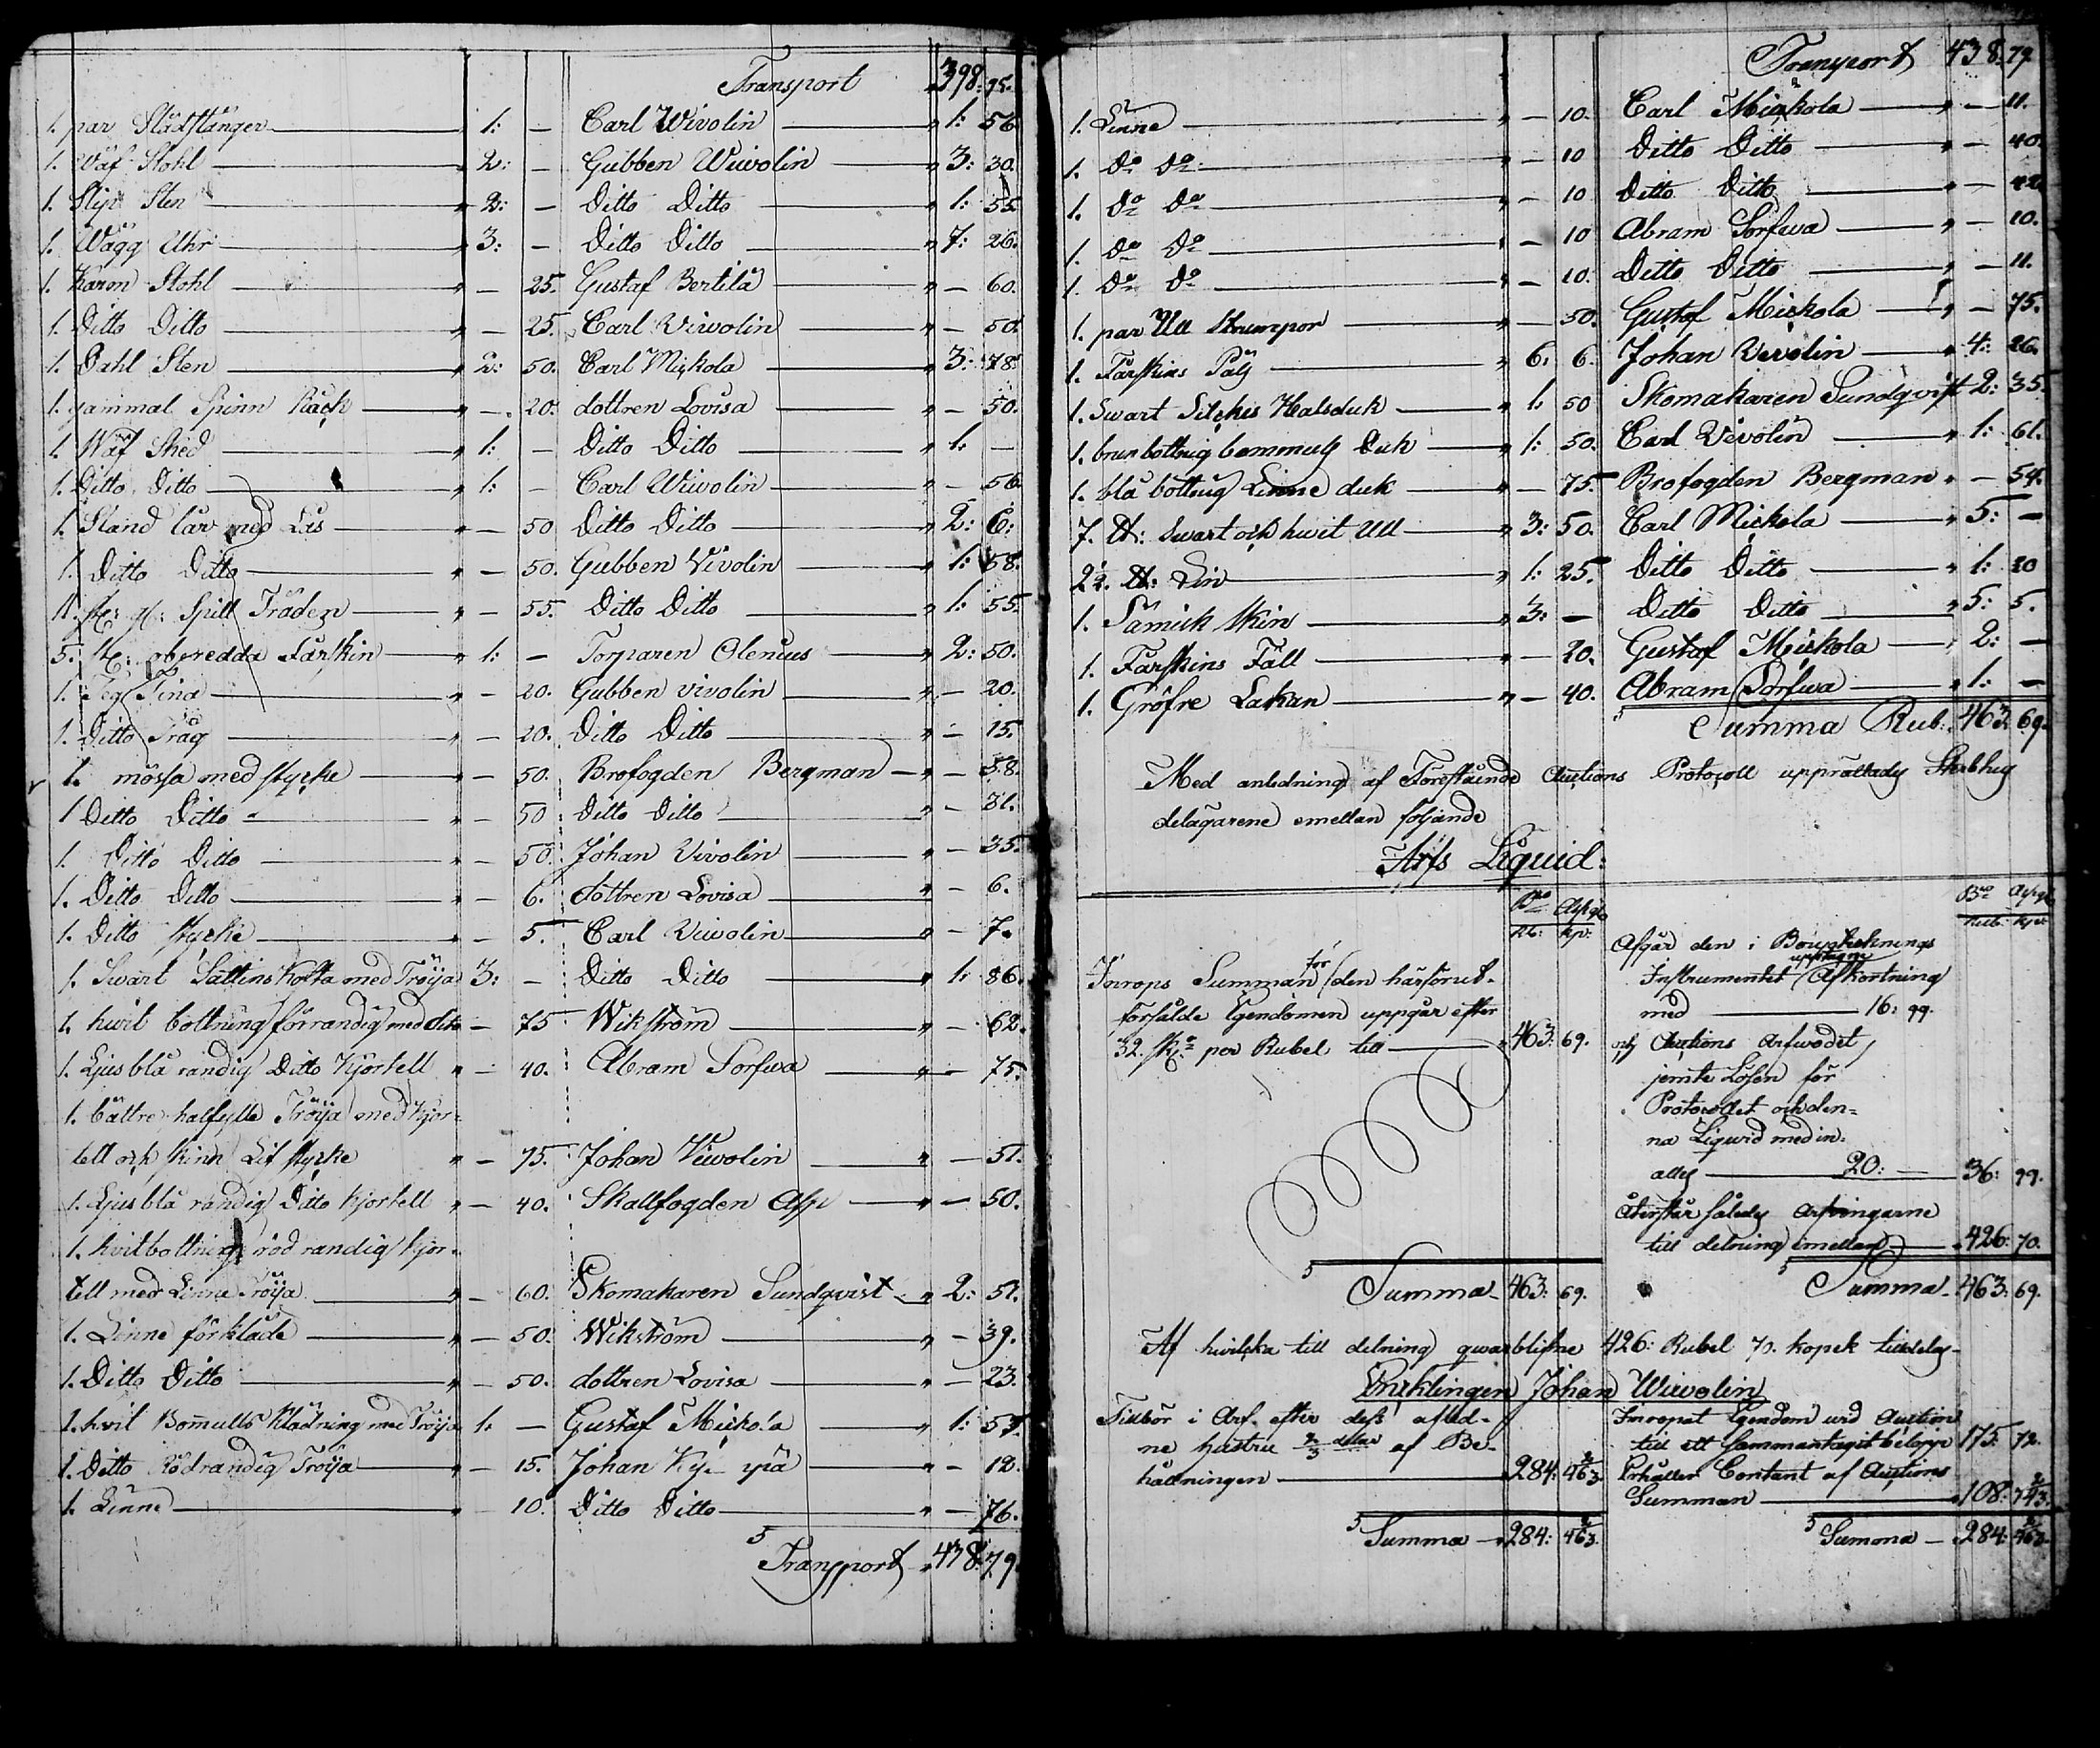 Transport 398: 95.
1. par Slädstänger 1: — Carl Wivolin 1: 56
1. Wäf Stohl 2: — Gubben Wivolin 3: 30.
1. Slip Sten 2: — Ditto Ditto 1: 55
1. Wägg Uhr 3: — Ditto Ditto 7: 26.
1. Karon Stohl — 25. Gustaf Bertilä — 60.
1. Ditto Ditto — 25. Carl Wivolin — 50.
1. Dahl Sten 2: 50. Carl Mickola 3: 78.
1. gammal Spinn Råck — 20. dottren Lovisa — 50.
1. Wäf Sked 1: — Ditto Ditto 1: —
1. Ditto Ditto 1: — Carl Wivolin — 56
1. Stand lår med Lås — 50 Ditto Ditto 2: 6:
1. Ditto Ditto — 50. Gubben Vivolin 1: 58.
11. st: gl: Spill Träden — 55. Ditto Ditto 1: 55.
5. st: oberedda Fårskin 1: — Torparen Olenius 2: 50.
1. Deg Tina — 20. Gubben vivolin — 20.
1. Ditto Tråg — 20. Ditto Ditto — 15.
1. mössa med stycke — 50. Brofogden Bergman — 58.
1 Ditto Ditto — 50 Ditto Ditto — 31.
1. Ditto Ditto — 50. Johan Vivolin — 35.
1. Ditto Ditto — 6. dottren Lovisa — 6.
1. Ditto stycke — 5. Carl Vivolin — 7.
1. Swart Sattins Kofta med Tröija 3: — Ditto Ditto 1: 86.
1. hwit bottnig förrandig med dito — 75 Wikström — 62.
1. Ljusblå randig Ditto Kjortell — 40. Abram Sorfwa — 75.
1. bättre halfylle Tröija med Kjor-
tell och skinn Lif stycke — 75. Johan Vivolin — 51.
1. Ljusblå randig Ditto Kjortell — 40. Skallfogden Asp — 50.
1. hvitbottnig röd randig Kjor-
tell med Linne Tröija — 60. Skomakaren Sundqvist 2: 51.
1. Linne förkläde — 50. Wikström — 39.
1. Ditto Ditto — 50. dottren Lovisa — 23.
1. hvit Bomulls Klädning med Tröija 1: — Gustaf Mickola 1: 57.
1. Ditto Rödrandig Tröija — 15. Johan — 12.
1. Linne — 10. Ditto Ditto — 76.
Transport 438: 79.
Transport 438: 79.
1. Linne — 10. Carl Mickola — 11.
1. Do Do — 10 Ditto Ditto — 40.
1. Do Do — 10 Ditto Ditto — 42
1. Do Do — 10 Abram Sorfwa — 10.
1. Do Do — 10. Ditto Ditto — 11.
1. par Ull Strumpor — 50. Gustaf Mickola — 75.
1. Fårskins Päls 6: 6. Johan Vivolin 4: 26.
1. Swart Silckes Halsduk 1: 50 Skomakaren Sundqvist 2: 35.
1. brunbottnig bommuls Duk 1: 50. Carl Vivolin 1: 61.
1. blå bottnig Linne duk — 75. Brofogden Bergman — 54.
7. ℔: Swart och hwit Ull 3: 50. Carl Mickola 5: —
2½. ℔: Lin 1: 25. Ditto Ditto 1: 20
1. Sämsk skin 3: — Ditto Ditto 5: 5.
1. Fårskins Fäll — 20. Gustaf Mickola 2: —
1. Gröfre Lakan — 40. Abram Sorfwa 1: —
Summa Rub. 463: 69.
Med anledning af Förestående Auctions Protocoll upprättades Sterbhus
delägarene emellan följande
Arfs Liquid:
Bco Assign
Rub: kp:
Bco Assign
Rub: kp:
Inrops Summan för den härförut-
försålde Egendomen uppgår efter
32. sk. per Rubel till 463: 69.
Afgår den i Bouppteknings
Instrumentet upptagne Afkortning
med 16: 99.
och Auctions Arfwodet
jemte Lösen för
Protocollet och den-
na Liqwid med in-
alles 20: — 36: 99.
Återstår således Arfvingarne
till delning emellan 426: 70.
Summa 463: 69.
Summa 463: 69.
Af hvilcka till delning qwarblifne 426: Rubel 70. kopek tilldelas
Enklingen Johan Wivolin
Tillkör i Arf efter dess afled-
ne hustru 2/3 delar af Be-
hållningen 284: 46 2/3.
Inropat Egendom wid Auction
till ett sammantagit belopp 175: 72.
Erhåller Contant af Auctions
Summan 108: 74 2/3.
Summa 284: 46 2/3.
Summa 284: 46 2/3.